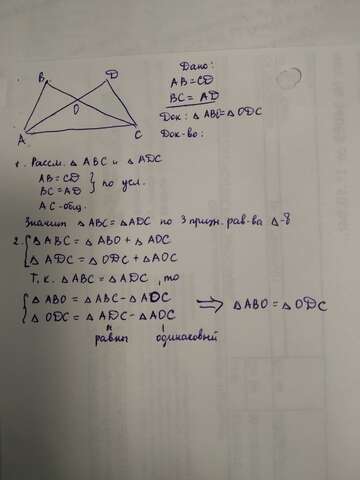 B
D
O
A
C
Дано:
AB = CD
BC = AD
Док: △ ABO = △ ODC
Док-во:
1. Рассм. △ ABC и △ ADC
AB = CD
BC = AD } по усл.
AC - общ.
Значит △ ABC = △ ADC по 3 призн. рав-ва △-в
2. { △ ABC = △ ABO + △ AOC
△ ADC = △ ODC + △ AOC
Т.к. △ ABC = △ ADC, то
{ △ ABO = △ ABC - △ AOC ⟹ △ ABO = △ ODC
△ ODC = △ ADC - △ AOC
равны одинаковый